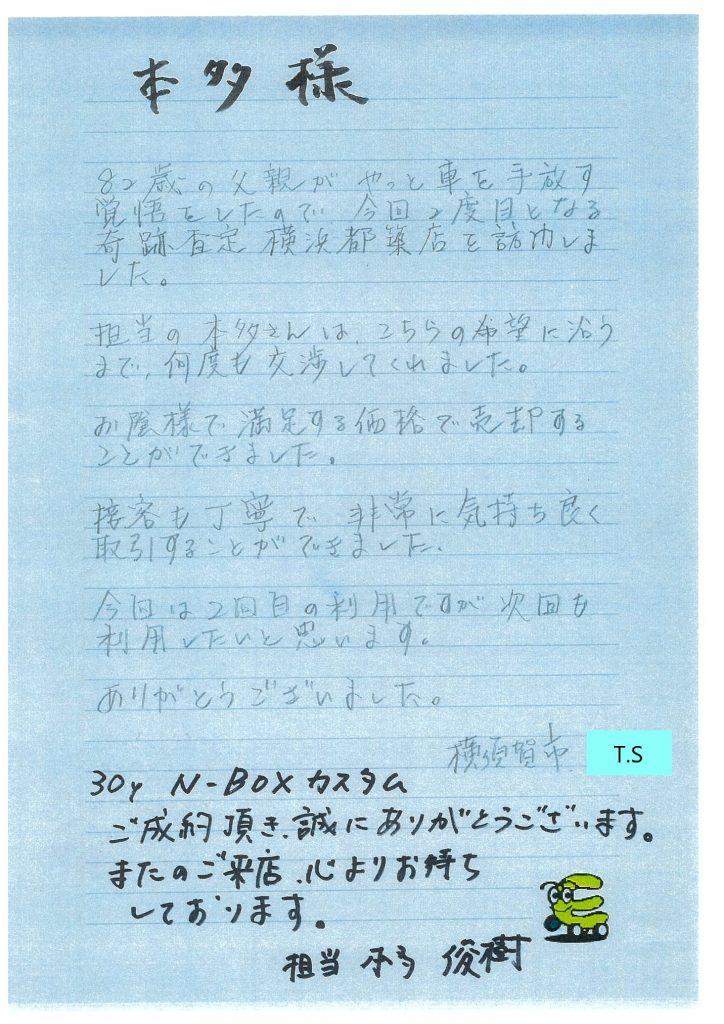 本多様
82歳の父親がやっと車を手放す
覚悟をしたので、今回2度目となる
奇跡査定横浜都築店を訪問しま
した。
担当の本多さんは、こちらの希望に沿う
まで、何度も交渉してくれました。
お陰様で満足する価格で売却する
ことができました。
接客も丁寧で非常に気持ち良く
取引することができました。
今回は2回目の利用ですが次回も
利用したいと思います。
ありがとうございました。
横須賀市 T.S
30y N-BOXカスタム
ご成約頂き、誠にありがとうございます。
またのご来店、心よりお待ち
しております。
担当 本多 俊樹